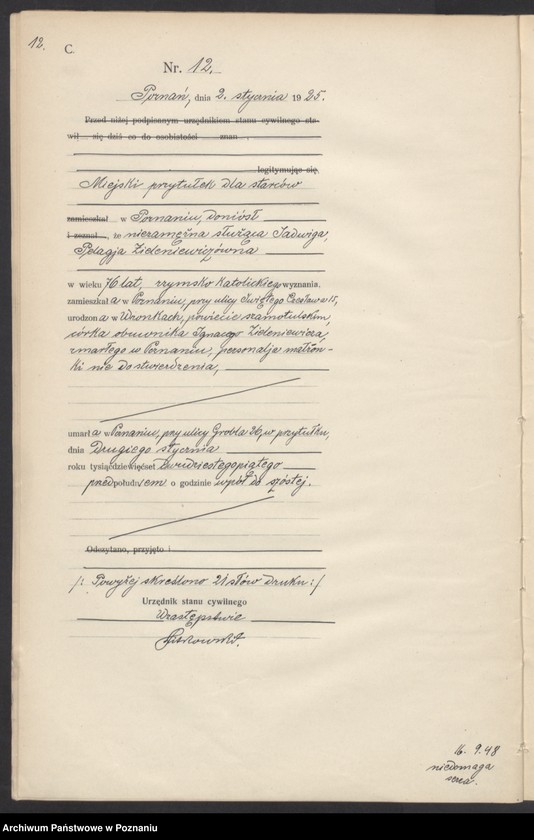 12.
C.
Nr. 12.
Poznań, dnia 2. stycznia 1925.
Przed niżej podpisanym urzędnikiem stanu cywilnego sta-
wił się dziś co do osobistości znan
legitymując się,
Miejski przytułek dla starców
zamieszkał w Poznaniu, doniósł
i zeznał, że niezamężna służąca Jadwiga,
Pelagja Zieleniewiczówna
w wieku 76 lat, rzymsko katolickiego wyznania.
zamieszkała w Poznaniu, przy ulicy Świętego Czesława 15,
urodzona w Wronkach, powiecie szamotulskim,
córka obuwnika Ignacego Zieleniewicza,
zmarłego w Poznaniu, personalje matron-
ki nie do stwierdzenia,
umarła w Poznaniu, przy ulicy Grobla 26, w przytułku,
dnia Drugiego stycznia
roku tysiącdziewięćset dwudziestegopiątego
przedpołudniem o godzinie wpół do szóstej.
Odczytano, przyjęto i
/: Powyżej skreślono 21 słów druku :/
Urzędnik stanu cywilnego
W zastępstwie
16. 9. 48
niedomaga
serca.
Archiwum Państwowe w Poznaniu